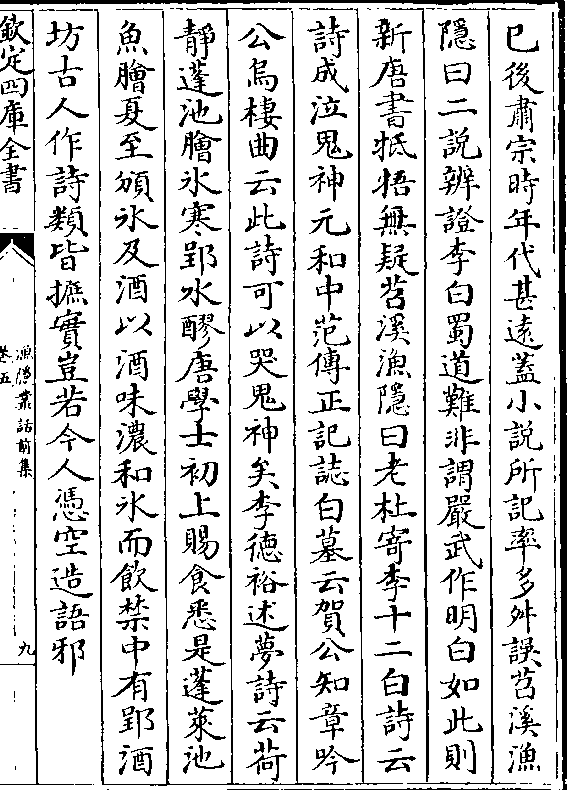 已後肅宗時年代甚遠蓋小說所記率多舛誤苕溪漁
隱曰二說辨證李白蜀道難非謂嚴武作明白如此則
新唐書牴牾無疑苕溪漁隱曰老杜寄李十二白詩云
詩成泣鬼神元和中范傳正記誌白墓云賀公知章吟
公烏棲曲云此詩可以哭鬼神矣李德裕述夢詩云荷
靜蓬池膾氷寒郢水醪唐學士初上賜食悉是蓬萊池
魚膾夏至頒氷及酒以酒味濃和氷而飲禁中有郢酒
坊古人作詩類皆摭實豈若今人憑空造語邪
欽定四庫全書
漁隱叢話前集
卷五
九